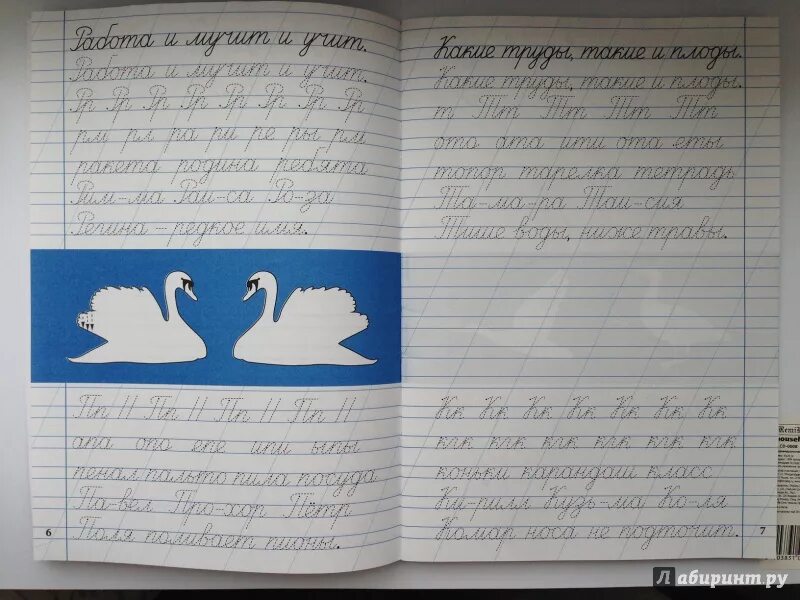 Работа и мучит и учит.
Работа и мучит и учит.
Рр Рр Рр Рр Рр Рр Рр Рр
рм рл ра ри ре ры рм
ракета родина ребята
Рим-ма Раи-са Ро-за
Регина – редкое имя.
Пп // Пп // Пп // Пп //
апа опо епе ипи ыпы
пенал пальто пила посуда
Па-вел Про-хор Пётр
Поля поливает пионы.
6
Какие труды, такие и плоды.
Какие труды, такие и плоды.
т Тт Тт Тт Тт
ото ата ити ота еты
топор тарелка тетрадь
Та-ма-ра Таи-сия
Тише воды, ниже травы.
Кк Кк Кк Кк Кк Кк Кк
кгк кгк кгк кгк кгк кгк кгк
коньки карандаш класс
Ки-рилл Кузь-ма Ко-ля
Комар носа не подточит.
7
Лабиринт.ру